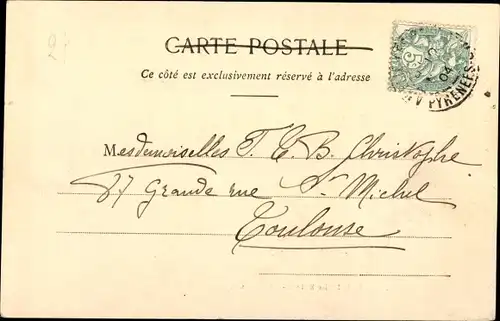 CARTE POSTALE
Ce côté est exclusivement réservé à l'adresse
5c
04
PYRENEES
Mesdemoiselles T. E. B. Christophe
87 Grande rue St Michel
Toulouse